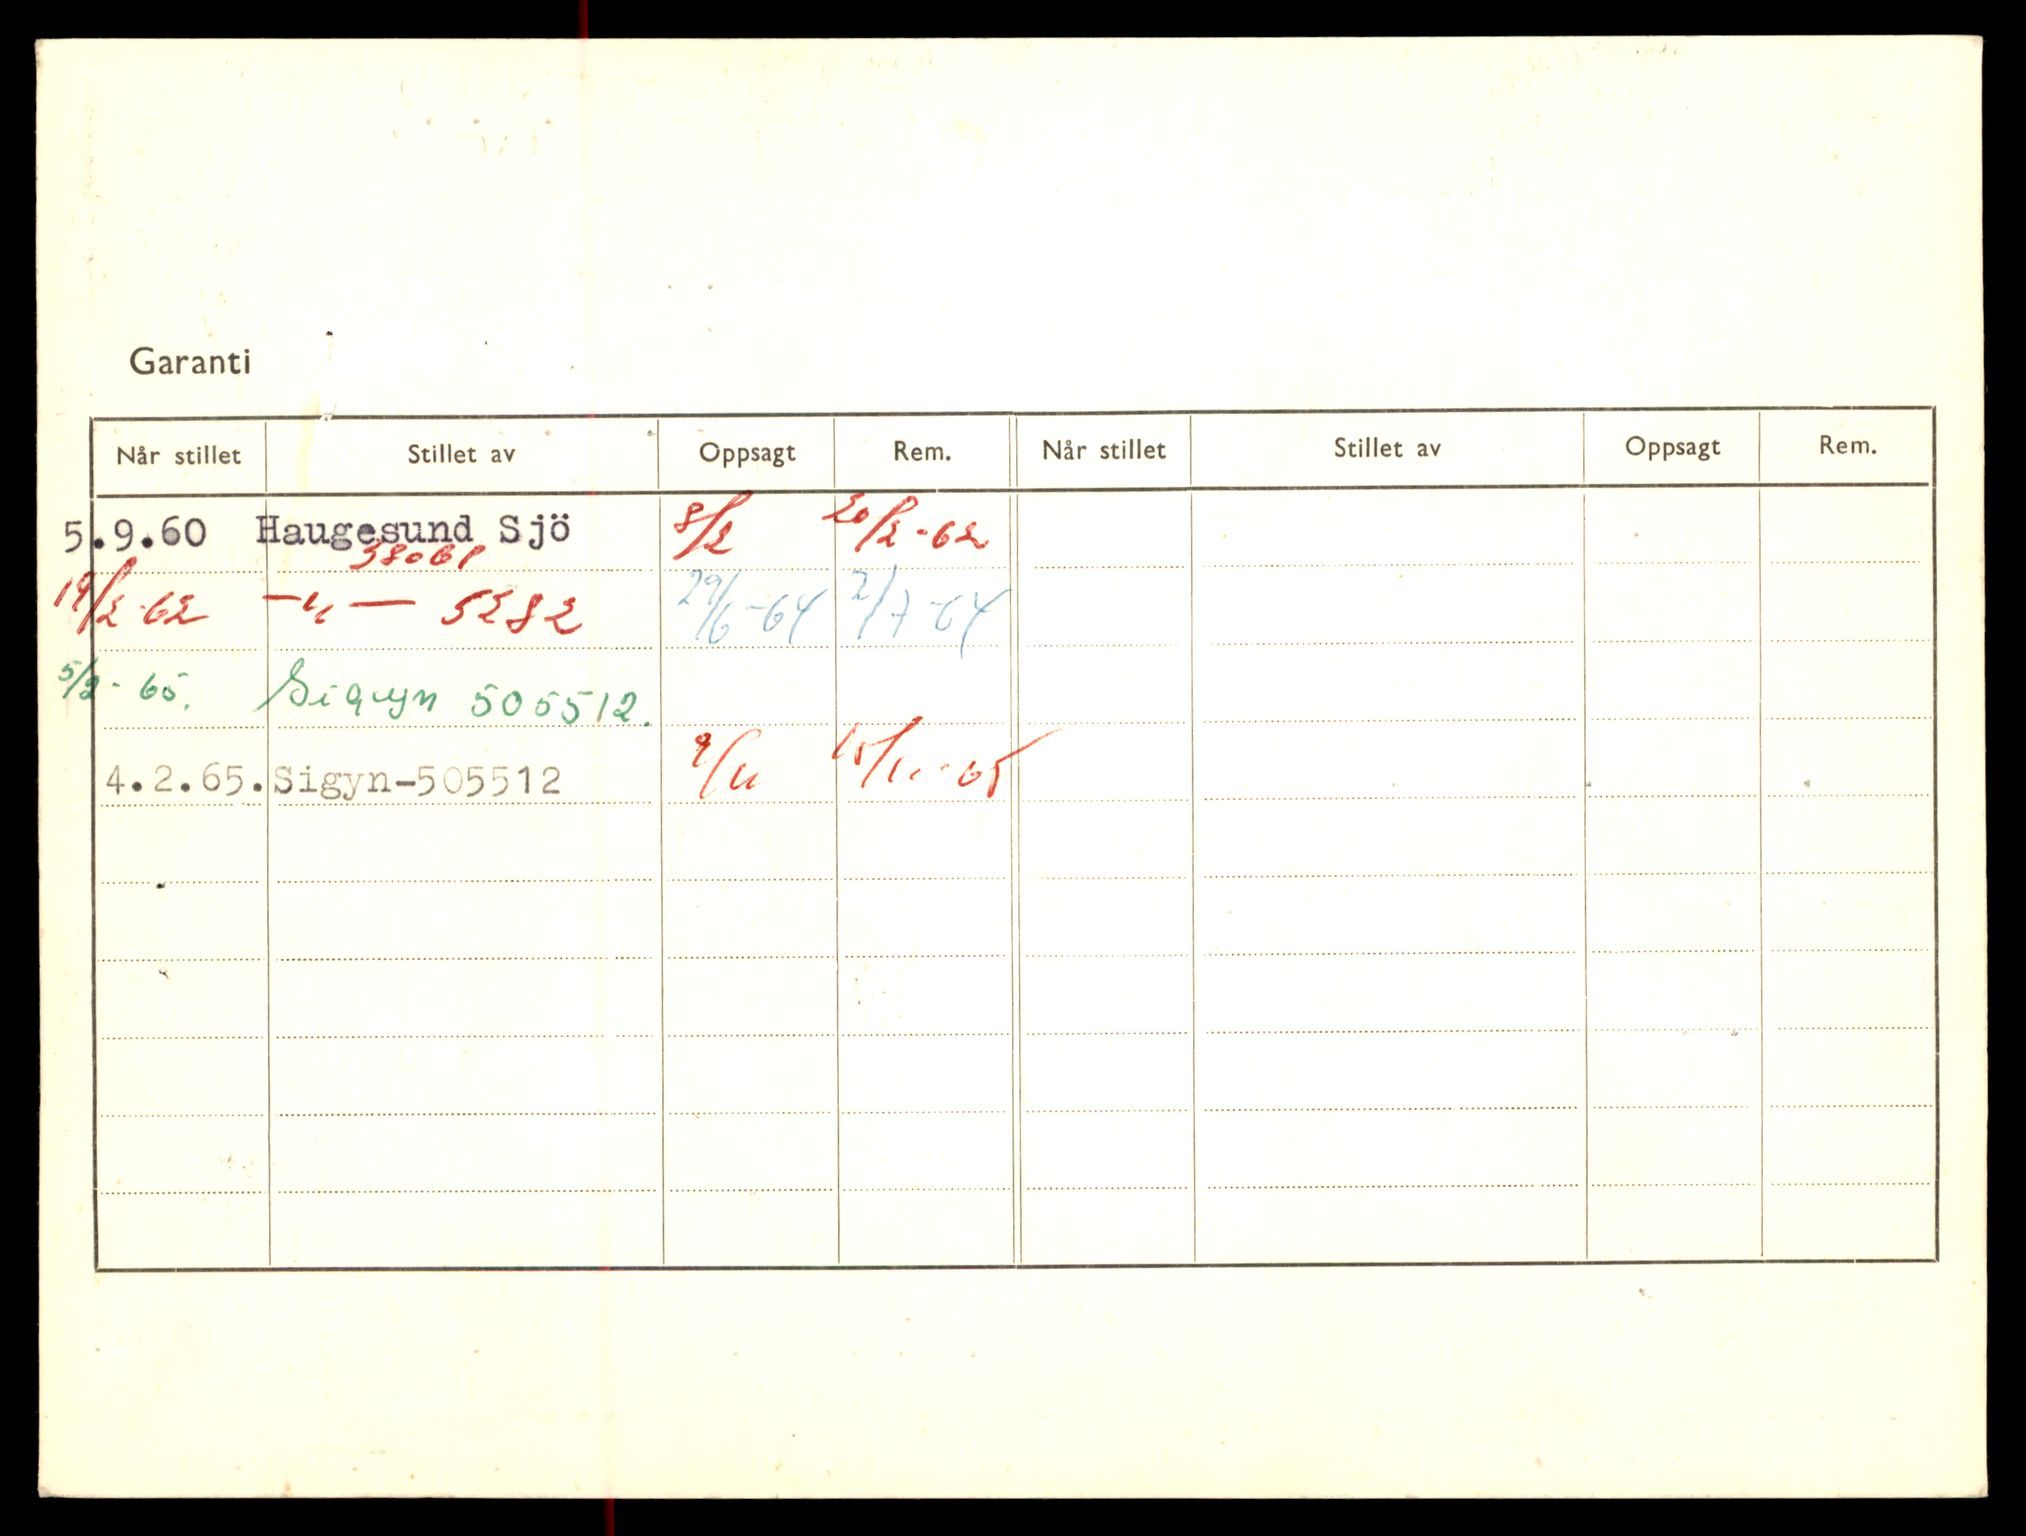 Garanti
Når stillet Stillet av Oppsagt Rem. Når stillet Stillet av Oppsagt Rem.
5.9.60 Haugesund Sjö 8/2 20/2-62
38061
19/2-62 —"— 5282 29/6-64 2/7-64
5/2-65. Sigyn 505512.
4.2.65. Sigyn-505512 9/11 15/11-65